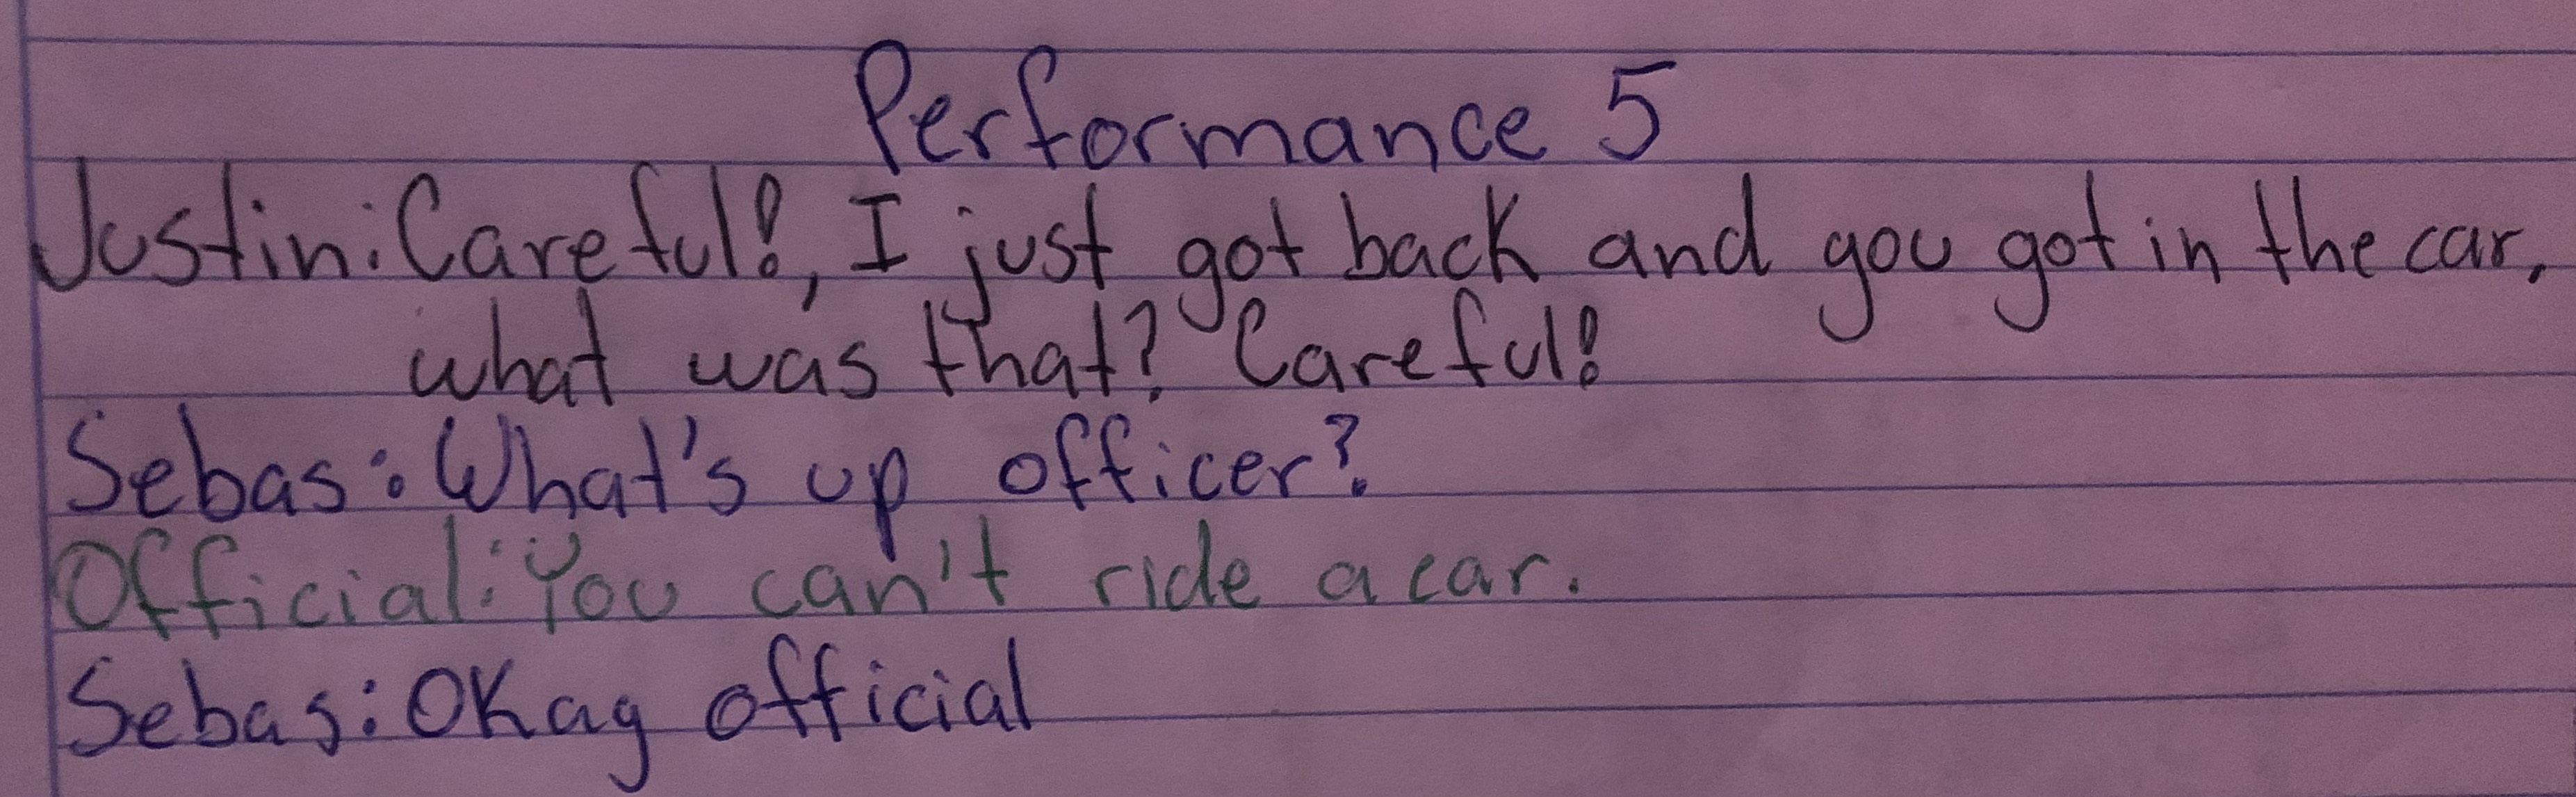 Performance 5
Justin: Careful!, I just got back and you got in the car,
what was that? Careful!
Sebas: What's up officer?
Official: You can't ride a car.
Sebas: Okay official